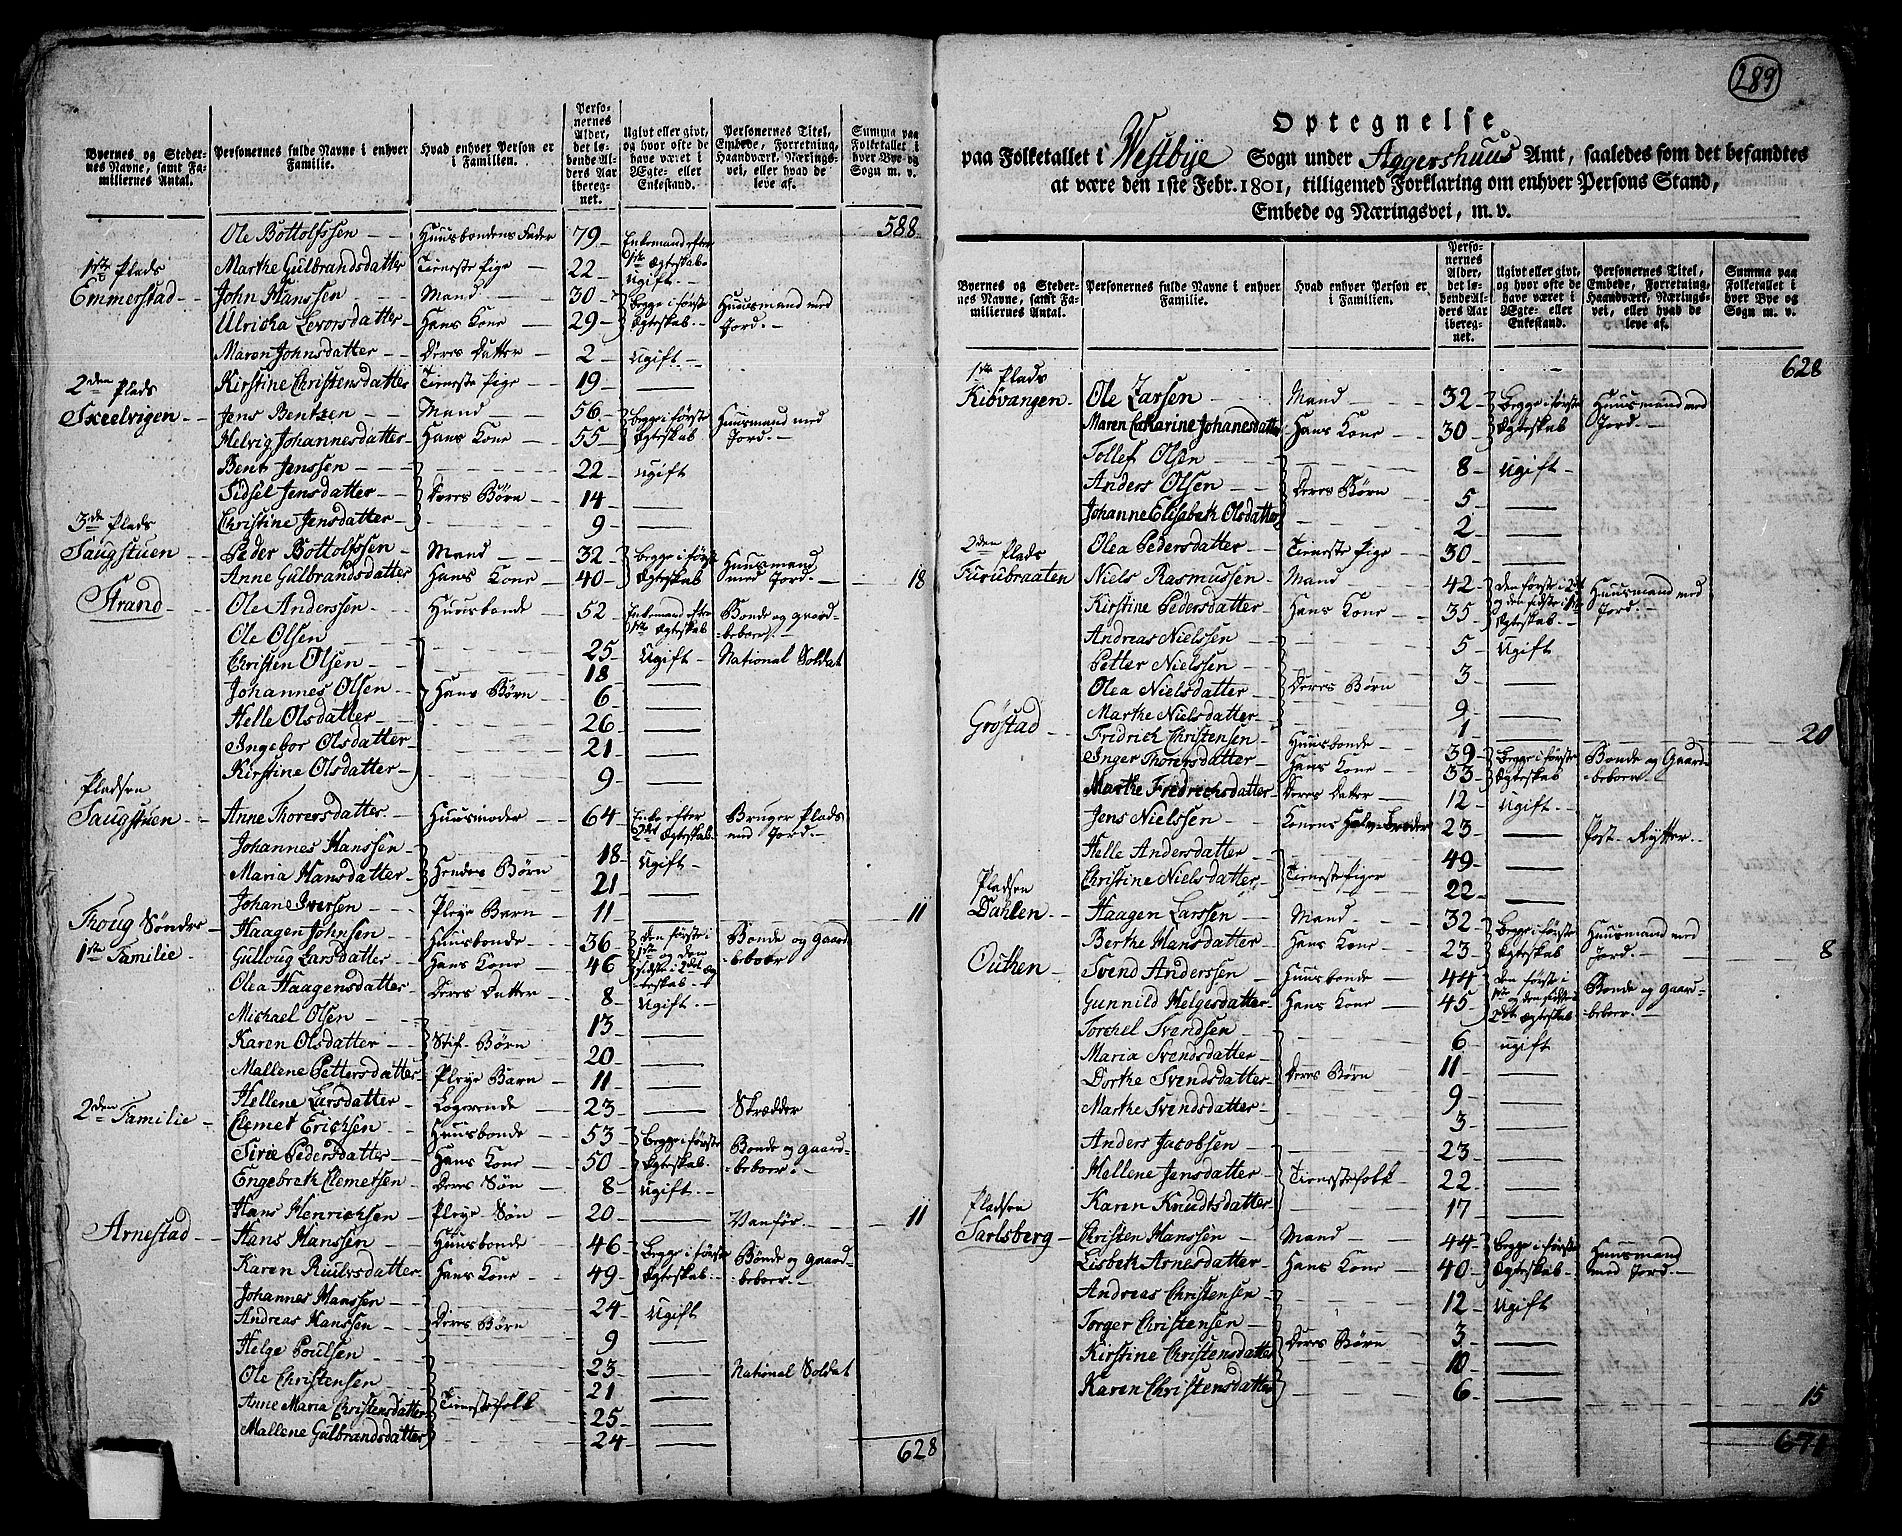 Byernes og Stedernes Navne, samt Familiernes Antal. | Personernes fulde Navne i enhver Familie. | Hvad enhver Person er i Familien. | Personernes Alder, det løbende Alders Aar iberegnet. | Ugivt eller givt, og hvor ofte de have været i Ægte- eller Enkestand. | Personernes Titel, Embede, Forretning, Haandværk, Næringsvei, eller hvad de leve af. | Summa paa Folketallet i hver Bye og Sogn m. v.
588
Ole Bottolfssen Huusbondens Fader 79 Enkemand efter 1ste Ægteskab
Marthe Gulbrandsdatter Tieneste Pige 22 ugift
1ste Plads
Emmerstad John Hanssen Mand 30 Begge i første Ægteskab Huusmand med Jord
Ulricha Levorsdatter Hans Kone 29
Maren Johnsdatter Deres Datter 2 ugift
Kirstine Christensdatter Tieneste Pige 19 —
2den Plads
Skeelvigen Jens Bentzen Mand 56 Begge i første Ægteskab Huusmand med Jord
Helvig Johannesdatter Hans Kone 55
Bent Jenssen 22 ugift
Sidsel Jensdatter Deres Børn 14 —
Christine Jensdatter 9 —
3de Plads
Saugstuen Peder Bottolfssen Mand 32 Begge i første Ægteskab Huusmand med Jord
Anne Gulbrandsdatter Hans Kone 40 18
Strand Ole Anderssen Huusbonde 52 Enkemand efter 1ste Ægteskab Bonde og gaardbeboer
Ole Olsen 25 Ugift National Soldat
Christen Olsen 18 —
Johannes Olsen Hans Børn 6 —
Helle Olsdatter 26 —
Ingebor Olsdatter 21 —
Kirstine Olsdatter 9 —
Pladsen
Saugstuen Anne Thorersdatter Huusmoder 64 Enke efter 2det Ægteskab Bruger Plads med Jord
Johannes Hanssen 18 Ugift
Maria Hansdatter Hendes Børn 21 —
Johan Iversen Pleye Barn 11 — 11
Thoug Søndre Haagen Johnsen Huusbonde 36 den første i 1ste og den sidste i 2det Ægteskab Bonde og gaardbeboer
1ste Familie Gulloug Larsdatter Hans Kone 46
Olea Haagensdatter Deres Datter 8 Ugift
Michael Olsen 13 —
Karen Olsdatter Stif Børn 20 —
Mallene Pettersdatter Pleye Barn 11 —
Hellene Larsdatter Logerende 23 — Skrædder
2den Familie Clemet Erichsen Huusbonde 53 Begge i første Ægteskab Bonde og gaardbeboer
Siri Pedersdatter Hans Kone 50
Engebreth Clemetsen Deres Søn 8 ugift
Hans Henrichsen Pleye Søn 20 — Vanfør 11
Arnestad Hans Hanssen Huusbonde 46 Begge i første Ægteskab Bonde og gaardbeboer
Karen Ruulvsdatter Hans Kone 49
Johannes Hanssen 24 Ugift
Andreas Hanssen Deres Børn 9 —
Helge Poulsen 23 — National Soldat
Ole Christensen 21 —
Anne Maria Christensdatter Tienestefolk 25 —
Mallene Gulbrandsdatter 24 —
628
289
Optegnelse
paa Folketallet i Westbye Sogn under Aggershuus Amt, saaledes som det befandtes
at være den 1ste Febr. 1801, tilligemed Forklaring om enhver Persons Stand,
Embede og Næringsvei, m. v.
Byernes og Stedernes Navne, samt Familiernes Antal. | Personernes fulde Navne i enhver Familie. | Hvad enhver Person er i Familien. | Personernes Alder, det løbende Alders Aar iberegnet. | Ugivt eller givt, og hvor ofte de have været i Ægte- eller Enkestand. | Personernes Titel, Embede, Forretning, Haandværk, Næringsvei, eller hvad de leve af. | Summa paa Folketallet i hver Bye og Sogn m. v.
628
1ste Plads
Kibvangen Ole Larsen Mand 32 Begge i første Ægteskab Huusmand med Jord
Maren Catharine Johanesdatter Hans Kone 30
Tollef Olsen 8 ugift
Anders Olsen Deres Børn 5 —
Johanne Elisabeth Olsdatter 2 —
Olea Pedersdatter Tieneste Pige 30 —
2den Plads
Furubraaten Niels Rasmussen Mand 42 den første i 2det og den sidste i 1ste Ægteskab Huusmand med Jord
Kirstine Pedersdatter Hans Kone 35
Andreas Nielssen 5 Ugift
Petter Nielssen 3 —
Olea Nielsdatter Deres Børn 9 —
Marthe Nielsdatter 1 — 20
Grøstad Fridrich Christensen Huusbonde 39 Begge i første Ægteskab Bonde og Gaardbeboer
Inger Thorersdatter Hans Kone 33
Marthe Fredrichsdatter Deres Datter 12 ugift
Jens Nielssen Konens Halv-Broder 23 — Post-Rytter
Helle Andersdatter 49 —
Christine Nielsdatter Tienestepiger 22 —
Pladsen
Dahlen Haagen Larssen Mand 32 Begge i første Ægteskab Huusmand med Jord
Berthe Hansdatter Hans Kone 23 8
Outhen Svend Anderssen Huusbonde 44 den første i 1ste og den sidste i 2det Ægteskab Bonde og Gaardbeboer
Gunnild Helgesdatter Hans Kone 45
Torchel Svendsen 6 ugift
Maria Svendsdatter 11 —
Dorthe Svendsdatter Deres Børn 9 —
Marthe Svendsdatter 3 —
Anders Jacobsen 23 —
Mellene Jensdatter Tienestefolk 22 —
Karen Knudtsdatter 17 —
Pladsen
Tarlsberg Christen Hanssen Mand 44 Begge i første Ægteskab Huusmand med Jord
Lisbeth Arnesdatter Hans Kone 40
Andreas Christensen 12 Ugift
Torger Christensen 3 —
Kirstine Christensdatter Deres Børn 10 —
Karen Christensdatter 6 — 15
671